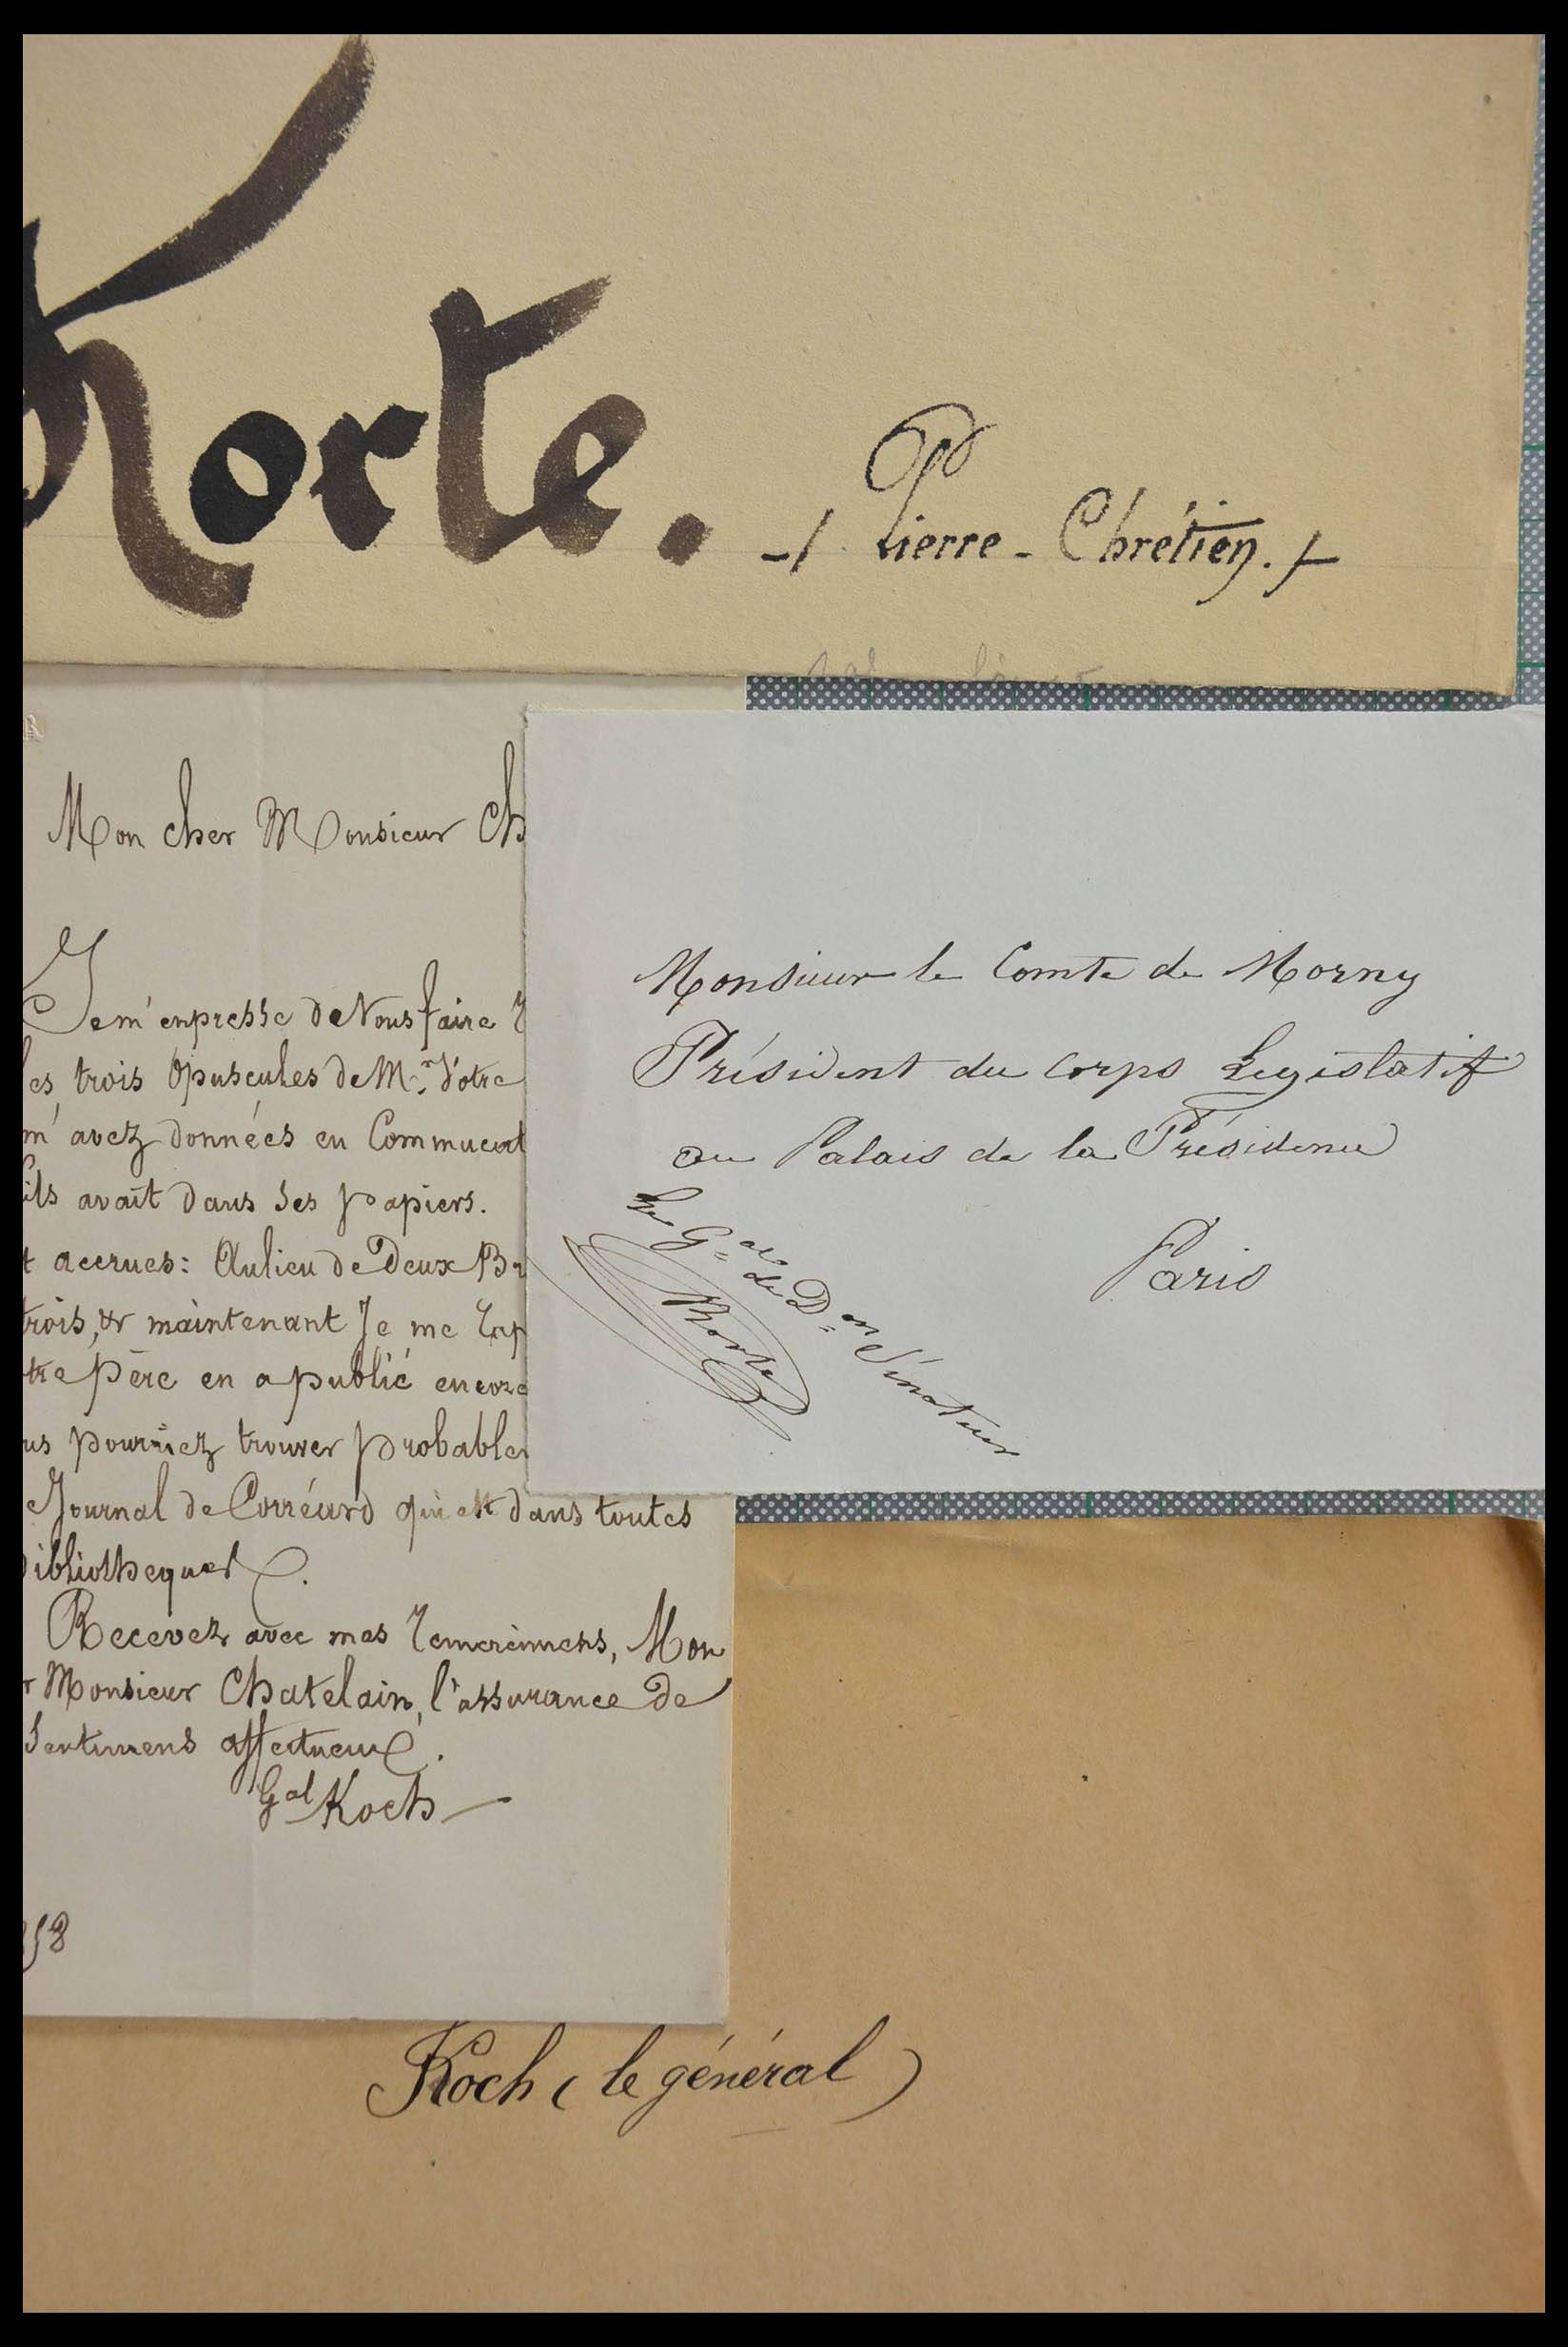 Korte.
-/ Pierre - Chrétien. /-
Mon cher Monsieur Ch
Je m'enpresse de Vous faire
les trois Opuscules de Mr. Votre
m'avez données en Communicat
fils avait dans ses papiers.
t accrues: Aulieu de Deux Br
trois, & maintenant Je me rap
tre Père en a publié encore
us pourriez trouver probable
Journal de Corréard qui est dans toutes
bibliotheques.
Recevez avec mes remercimens, Mon
r Monsieur Chatelain, l'assurance de
Sentimens affectueux.
Gal Koch
58
Monsieur le Comte de Morny
Président du Corps Legislatif
au Palais de la Présidence
Paris
Le Gal de Don Sénateur
Korte
Koch (le général)